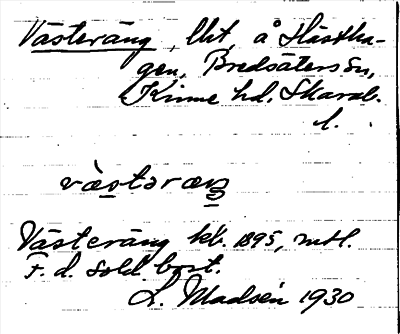 Västeräng, lht, å Hästha-
gen, Bredsäters sn,
Kinne hd, Skarab.
l.
västəräŋ
Västeräng kb. 1895, mtl.
F. d. sold. bost.
L. Madsén 1930